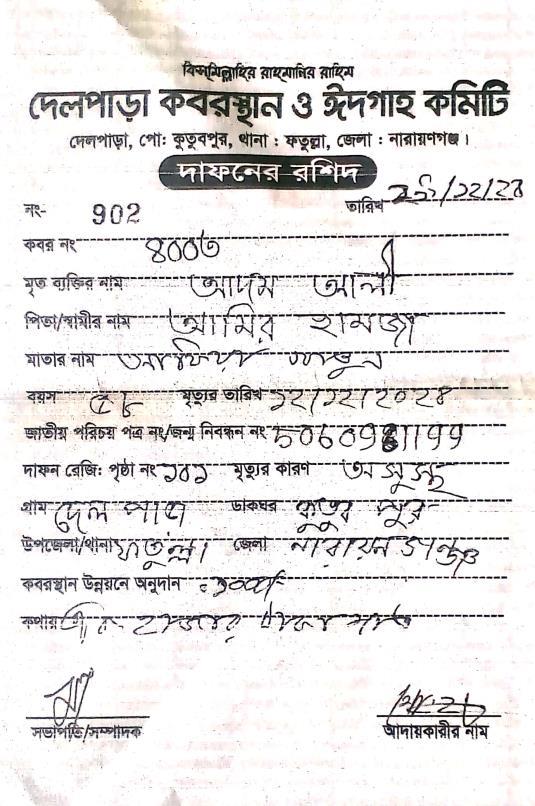 বিসমিল্লাহির রাহমানির রাহিম
দেলপাড়া কবরস্থান ও ঈদগাহ কমিটি
দেলপাড়া, পো: কুতুবপুর, থানা : ফতুল্লা, জেলা : নারায়ণগঞ্জ।
দাফনের রশিদ
নং- 902 তারিখ
কবর নং
মৃত ব্যক্তির নাম আদম আলী
পিতা/স্বামীর নাম আমির হামজা
মাতার নাম
বয়স ৫৮ মৃত্যুর তারিখ ১২/১২/২০২৪
জাতীয় পরিচয় পত্র নং/জন্ম নিবন্ধন নং
দাফন রেজি: পৃষ্ঠা নং ১০১ মৃত্যুর কারণ অসুস্থ
গ্রাম দেল পাড়া ডাকঘর কুতুব পুর
উপজেলা/থানা ফতুল্লা জেলা নারায়ন গঞ্জ
কবরস্থান উন্নয়নে অনুদান
কথায়
সভাপতি/সম্পাদক আদায়কারীর নাম